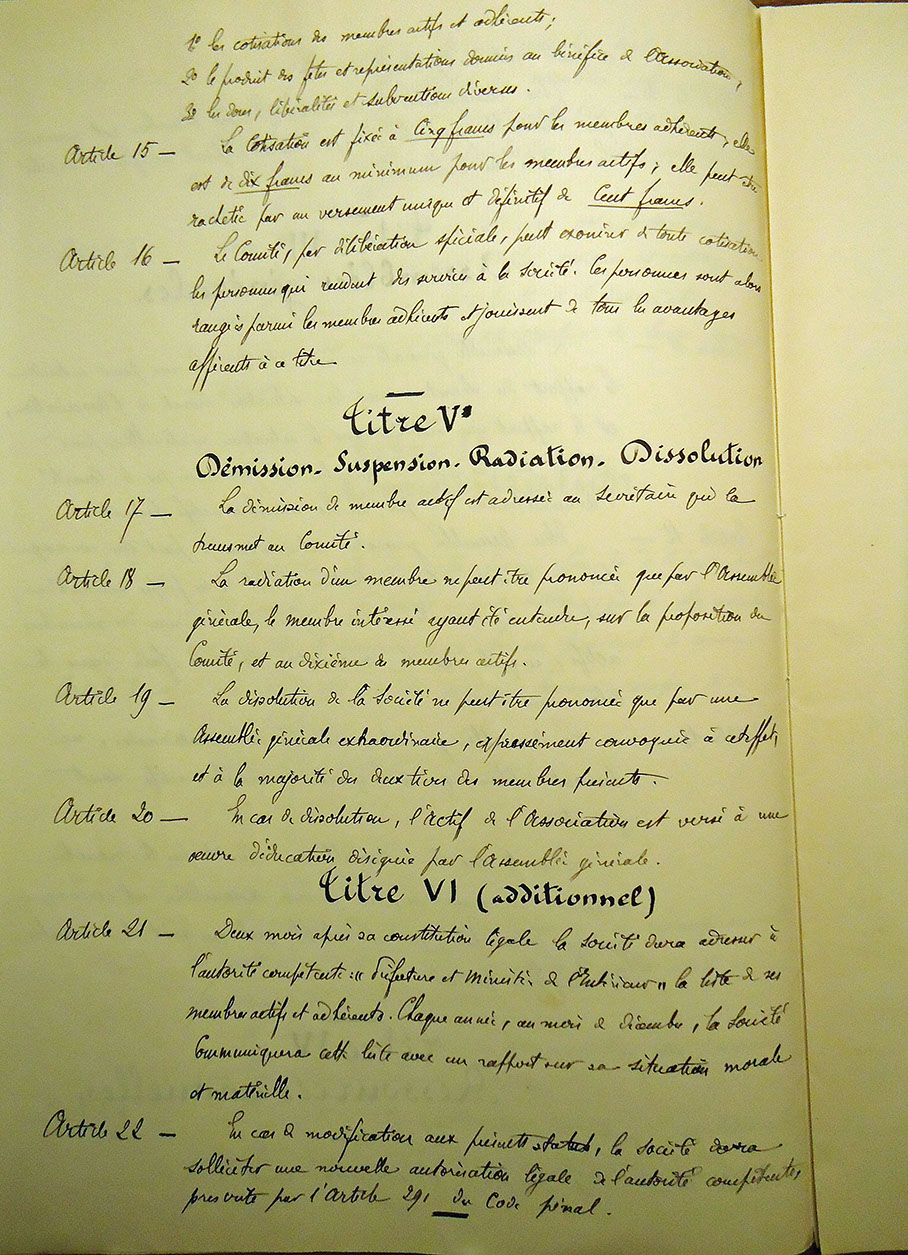 1º les cotisations des membres actifs et adhérents ;
2º le produit des fêtes et représentations données au bénéfice de l'Association ;
3º les dons, libéralités et subventions diverses.
Article 15 — La Cotisation est fixée à Cinq francs pour les membres adhérents ; elle
est de dix francs au minimum pour les membres actifs ; elle peut être
rachetée par un versement unique et définitif de Cent francs.
Article 16 — Le Comité, par délibération spéciale, peut exonérer de toute cotisation
les personnes qui rendent des services à la Société. Ces personnes sont alors
rangées parmi les membres adhérents et jouissent de tous les avantages
afférents à ce titre
Titre V
Démission - Suspension - Radiation - Dissolution
Article 17 — La démission de membre actif est adressée au Secrétaire qui la
transmet au Comité.
Article 18 — La radiation d'un membre ne peut être prononcée que par l'Assemblée
générale, le membre intéressé ayant été entendu, sur la proposition du
Comité, et au dixième de membres actifs.
Article 19 — La dissolution de la Société ne peut être prononcée que par une
Assemblée générale extraordinaire, expressément convoquée à cet effet,
et à la majorité des deux tiers des membres présents.
Article 20 — En cas de dissolution, l'Actif de l'Association est versé à une
œuvre d'éducation désignée par l'Assemblée générale.
Titre VI (additionnel)
Article 21 — Deux mois après sa constitution légale la Société devra adresser à
l'autorité compétente : « Préfecture et Ministère de l'Intérieur » la liste de ses
membres actifs et adhérents. Chaque année, au mois de décembre, la Société
Communiquera cette liste avec un rapport sur sa situation morale
et matérielle.
Article 22 — En cas de modification aux présents statuts, la Société devra
solliciter une nouvelle autorisation légale de l'autorité compétente,
prescrite par l'Article 291 du Code pénal.